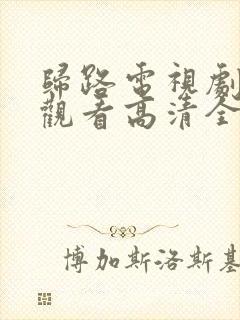 歸路電視劇
觀看高清全
博加斯洛斯基